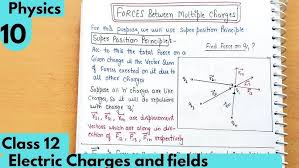 Physics
10
FORCES Between Multiple Charges
For this purpose, we will use Super Position Principle
Super Position Principle:
Find Force on q₁ ?
Acc. to this the total Force on a
Given charge is the Vector Sum
of Forces exerted on it due to
all other Charges
Suppose all 'n' charges are like
Charges, So it will do repulsions
with charge 'q₁'
are displacement
Vectors which are along in dir-
respectively
Class 12
Electric Charges and fields